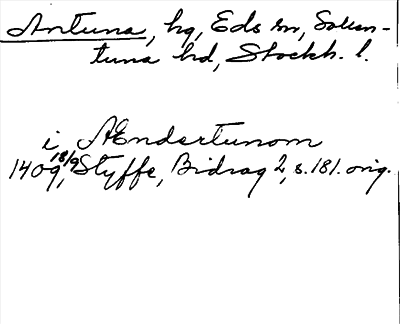 Antuna, hg, Eds sn, Sollen-
tuna hd, Stockh. l.
i Ændertunom
1409 18/9, Styffe, Bidrag 2, s. 181. orig.